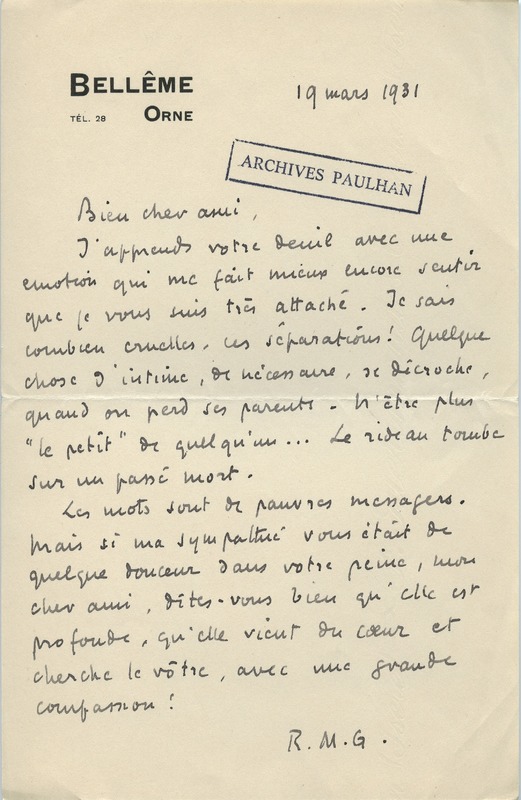 BELLÊME
TÉL. 28 ORNE
19 mars 1931
ARCHIVES PAULHAN
Bien cher ami,
J'apprends votre deuil avec une
emotion qui me fait mieux encore sentir
que je vous suis très attaché. Je sais
combien cruelles, ces séparations! Quelque
chose d'intime, de nécessaire, se décroche,
quand on perd ses parents. N'être plus
"le petit" de quelqu'un... Le rideau tombe
sur un passé mort.
Les mots sont de pauvres messagers.
Mais si ma sympathie vous était de
quelque douceur dans votre peine, mon
cher ami, dîtes-vous bien qu'elle est
profonde, qu'elle vient du cœur et
cherche le vôtre, avec une grande
compassion!
R.M.G.